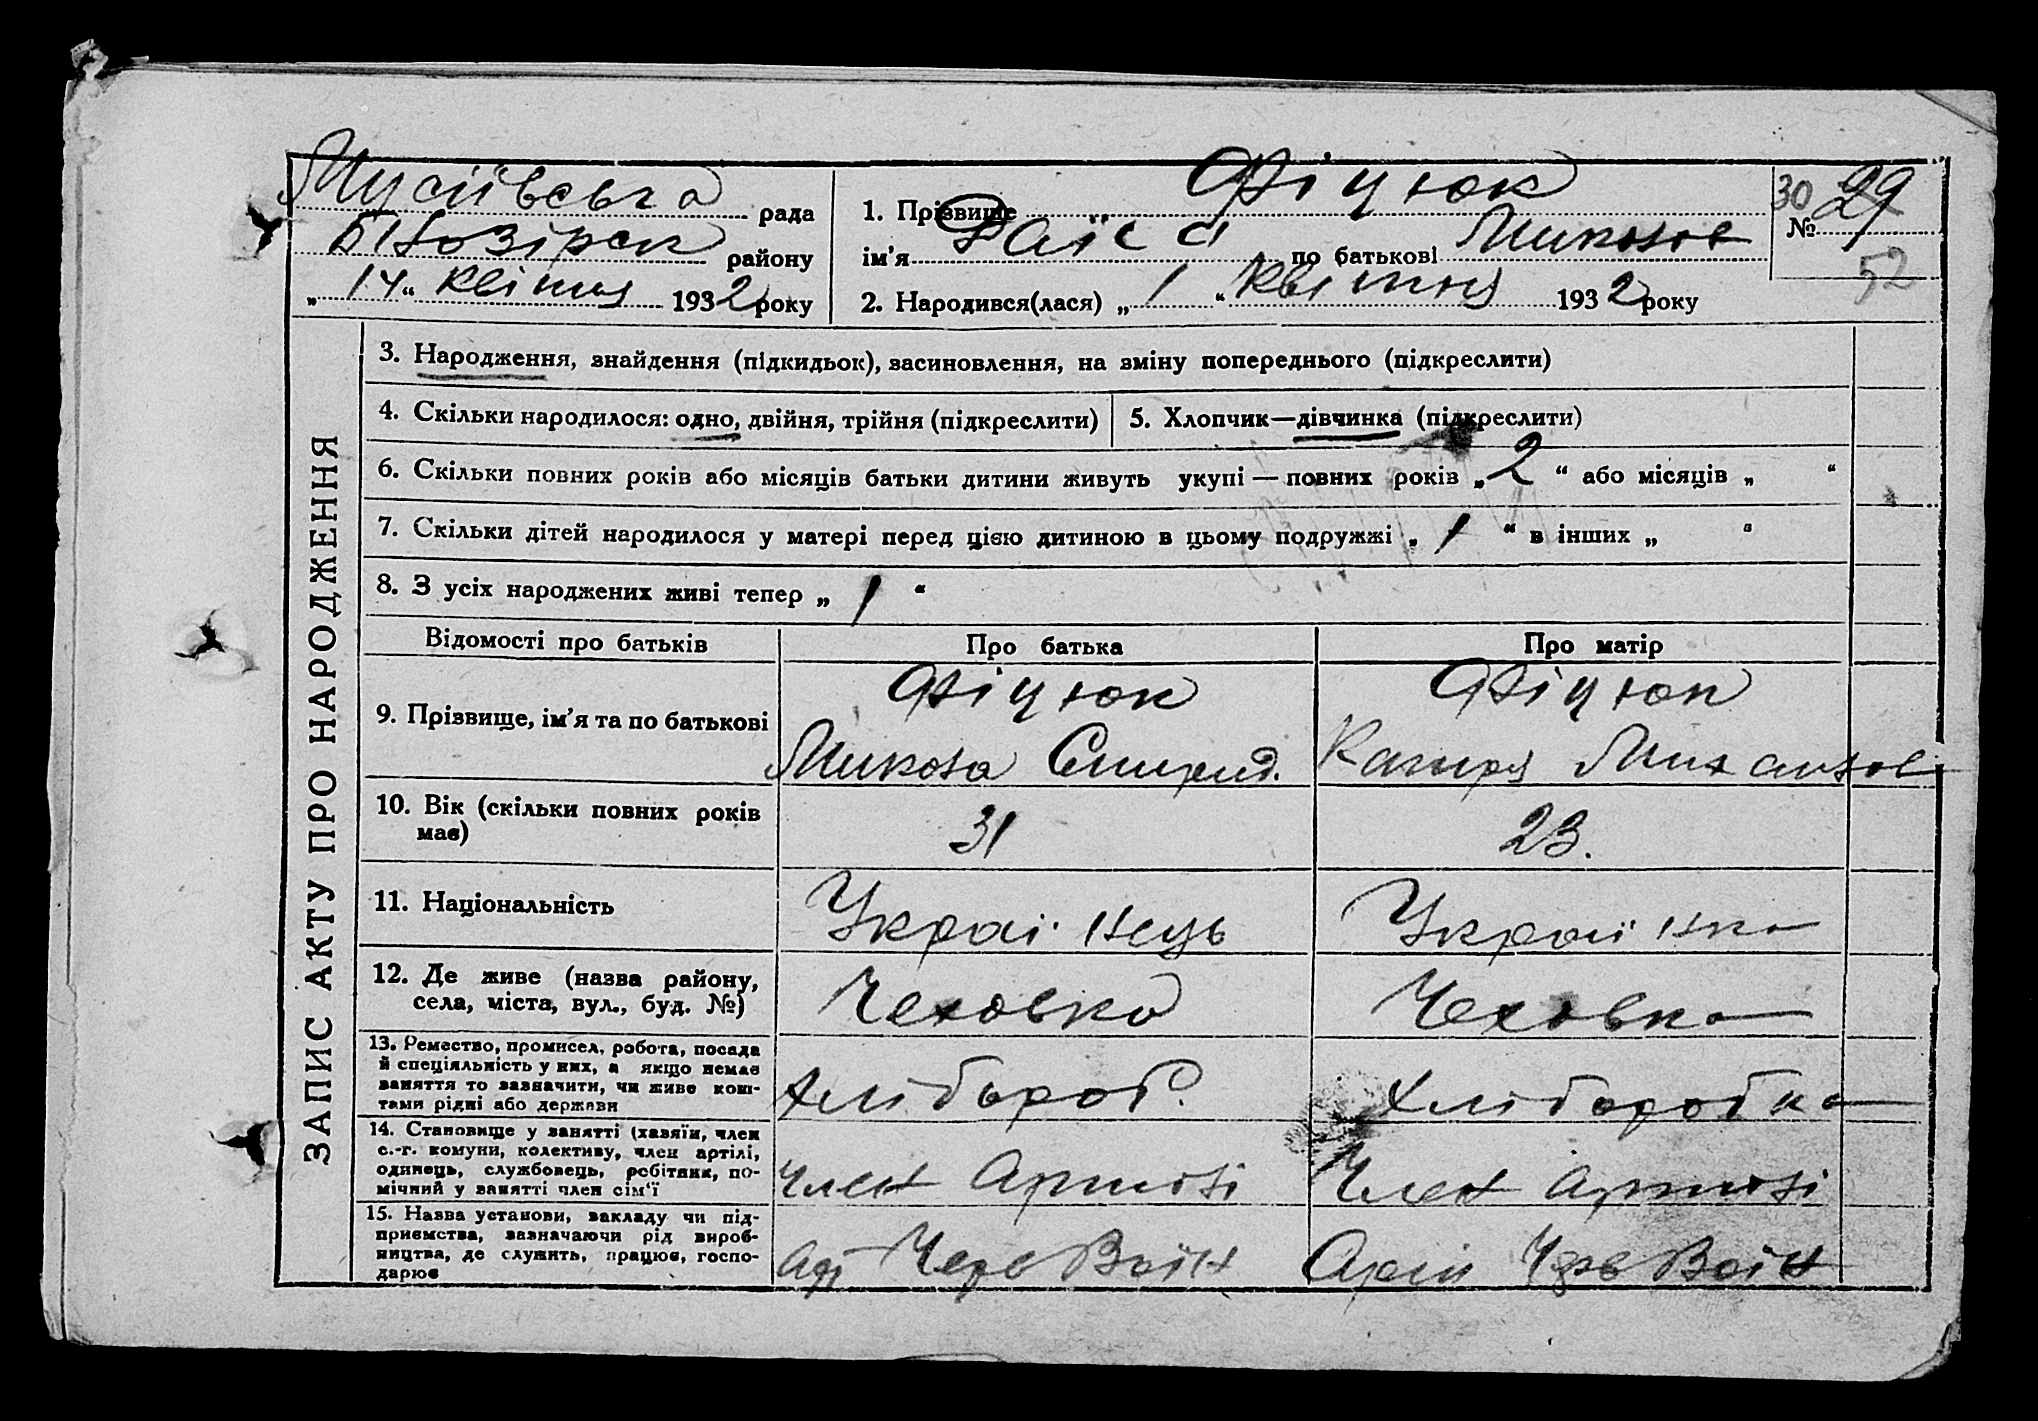 Мусіївська рада
Білозірськ району
„14“ квітня 1932 року
1. Прізвище Фіцюк
ім’я Раїса по батькові Миколов
2. Народився(лася) „1“ квітня 1932 року
30 № 29
52
ЗАПИС АКТУ ПРО НАРОДЖЕННЯ
3. Народження, знайдення (підкидьок), засиновлення, на зміну попереднього (підкреслити)
4. Скільки народилося: одно, двійня, трійня (підкреслити)
5. Хлопчик—дівчинка (підкреслити)
6. Скільки повних років або місяців батьки дитини живуть укупі — повних років „2“ або місяців „ “
7. Скільки дітей народилося у матері перед цією дитиною в цьому подружжі „1“ в інших „ “
8. З усіх народжених живі тепер „1“
Відомості про батьків Про батька Про матір
9. Прізвище, ім’я та по батькові
Фіцюк
Микола Спирид.
Фіцюк
Катря Михайлов
10. Вік (скільки повних років
має)
31
23.
11. Національність
Украінець
Украінка
12. Де живе (назва району,
села, міста, вул., буд. №)
Чеховка
Чеховка
13. Ремество, промисел, робота, посада
й спеціяльність у них, а якщо немає
заняття то зазначити, чи живе кош-
тами рідні або держави
Хлібороб.
Хліборобка
14. Становище у занятті (хазяїн, член
с.-г. комуни, колективу, член артілі,
одинець, службовець, робітник, по-
мічний у занятті член сім’ї
Член Артілі
Член Артілі
15. Назва установи, закладу чи під-
приємства, зазначаючи рід вироб-
ництва, де служить, працює, госпо-
дарює
Ар Черв Воїн
Черв Воїн